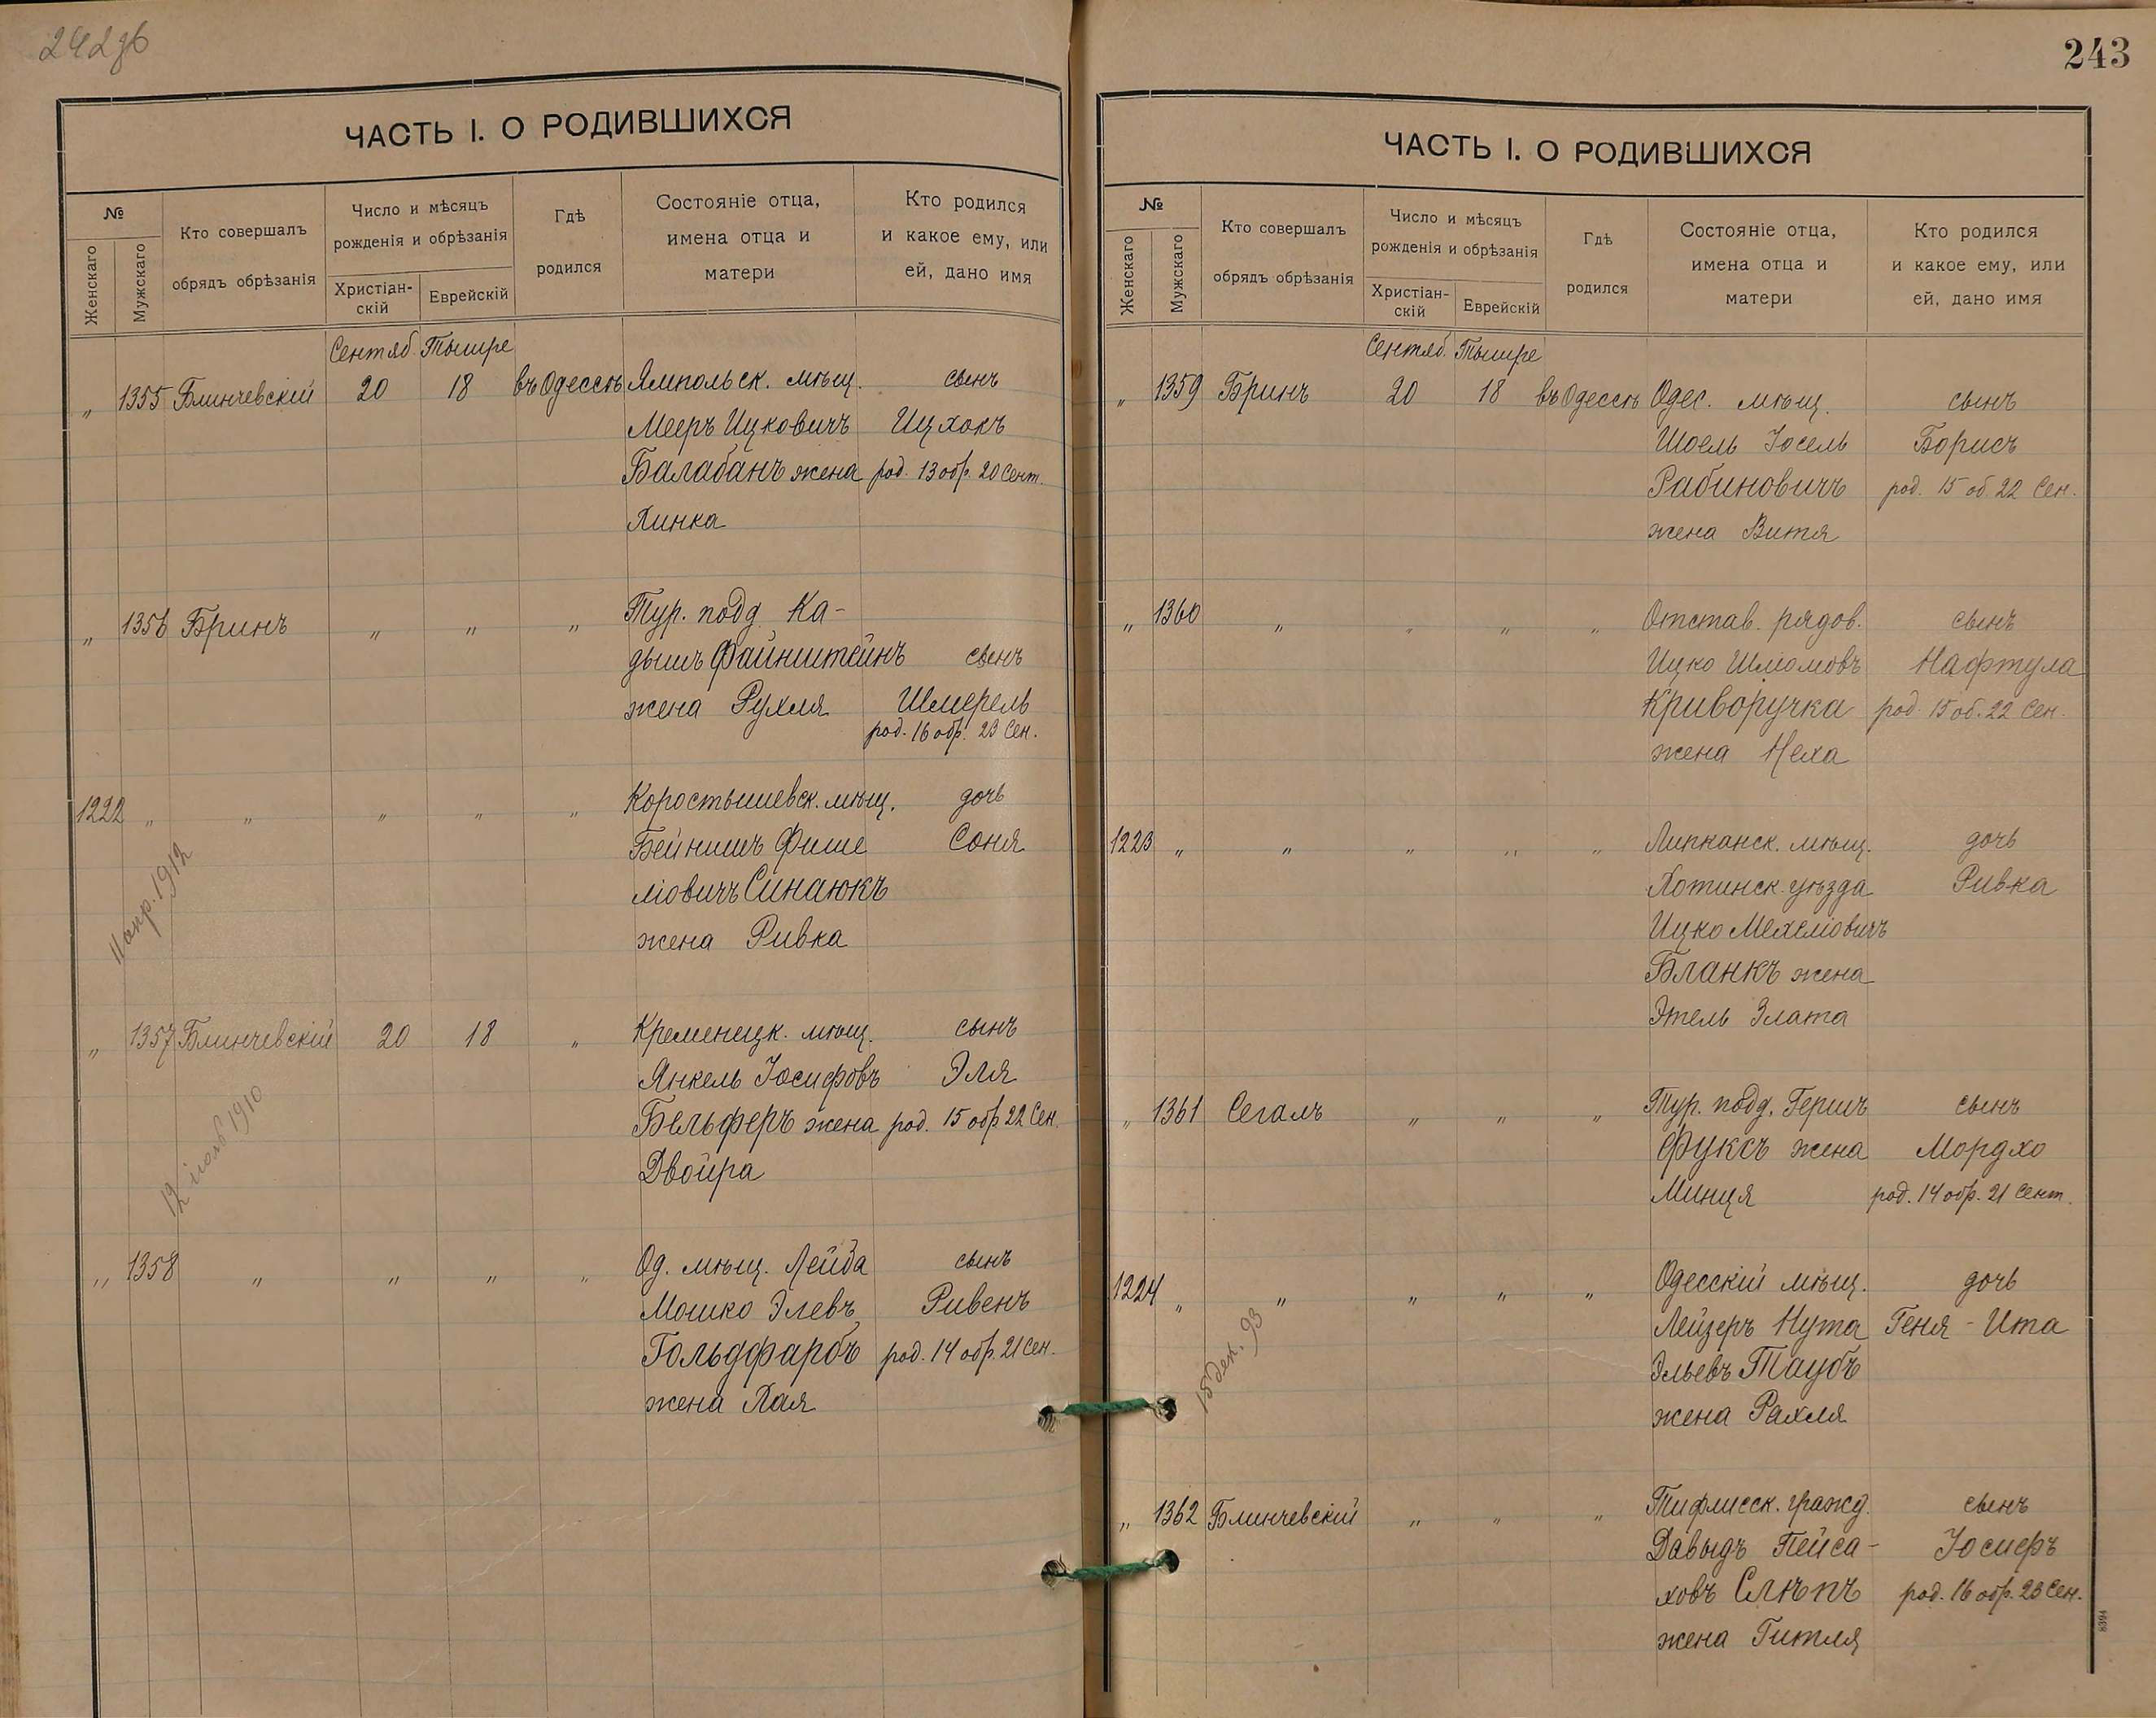 242об
ЧАСТЬ I. О РОДИВШИХСЯ
№
Женскаго
Мужскаго
Кто совершалъ
обрядъ обрѣзанія
Число и мѣсяцъ
рожденія и обрѣзанія
Христіан-
скій
Еврейскій
Гдѣ
родился
Состояніе отца,
имена отца и
матери
Кто родился
и какое ему, или
ей, дано имя
Сентяб. Тышре
„ 1355 Блинчевскій 20 18 въ Одессѣ Ямпольск. мѣщ. сынъ
Мееръ Ицковичъ Ицхокъ
Балабанъ жена род. 13 обр. 20 Сент.
Хинка
Тур. подд. Ка-
„ 1356 Бринъ „ „ „ дышъ Файнштейнъ сынъ
жена Рухля Шмерель
род. 16 обр. 23 Сен.
1222 „ „ „ „ „ Коростышевск. мѣщ. дочь
Бейнишъ Фише Соня
ліовичъ Синаюкъ
жена Ривка
11 апр. 1912
„ 1357 Блинчевскій 20 18 „ Кременецк. мѣщ. сынъ
Янкель Іосифовъ Эля
Бельферъ жена род. 15 обр 22 Сен.
Двойра
1910
„ 1358 „ „ „ „ Од. мѣщ. Лейба сынъ
Мошко Элевъ Ривенъ
Гольдфарбъ род. 14 обр. 21 Сен.
жена Хая
243
ЧАСТЬ I. О РОДИВШИХСЯ
№
Женскаго
Мужскаго
Кто совершалъ
обрядъ обрѣзанія
Число и мѣсяцъ
рожденія и обрѣзанія
Христіан-
скій
Еврейскій
Гдѣ
родился
Состояніе отца,
имена отца и
матери
Кто родился
и какое ему, или
ей, дано имя
Сентяб. Тышре
„ 1359 Бринъ 20 18 въ Одессѣ Одес. мѣщ. сынъ
Шоель Іосель Борисъ
Рабиновичъ род. 15 об. 22 Сен.
жена Витя
„ 1360 „ „ „ „ Отстав. рядов. сынъ
Ицко Шліомовъ Нафтула
Криворучка род. 15 об. 22 Сен.
жена Неха
1223 „ „ „ „ „ Липканск. мѣщ. дочь
Хотинск. уѣзда Ривка
Ицко Мехеліовичъ
Бланкъ жена
Этель Злата
„ 1361 Сегалъ „ „ „ Тур. подд. Гершъ сынъ
Фуксъ жена Мордхо
Минця род. 14 обр. 21 Сент.
1224 „ „ „ „ „ Одесскій мѣщ. дочь
Лейзеръ Нута Геня - Ита
Эльевъ Таубъ
жена Рахля
15 дек. 93
„ 1362 Блинчевскій „ „ „ Тифлисск. гражд. сынъ
Давыдъ Пейса- Іосифъ
ховъ Слѣпъ род. 16 обр. 23 Сен.
жена Гитля